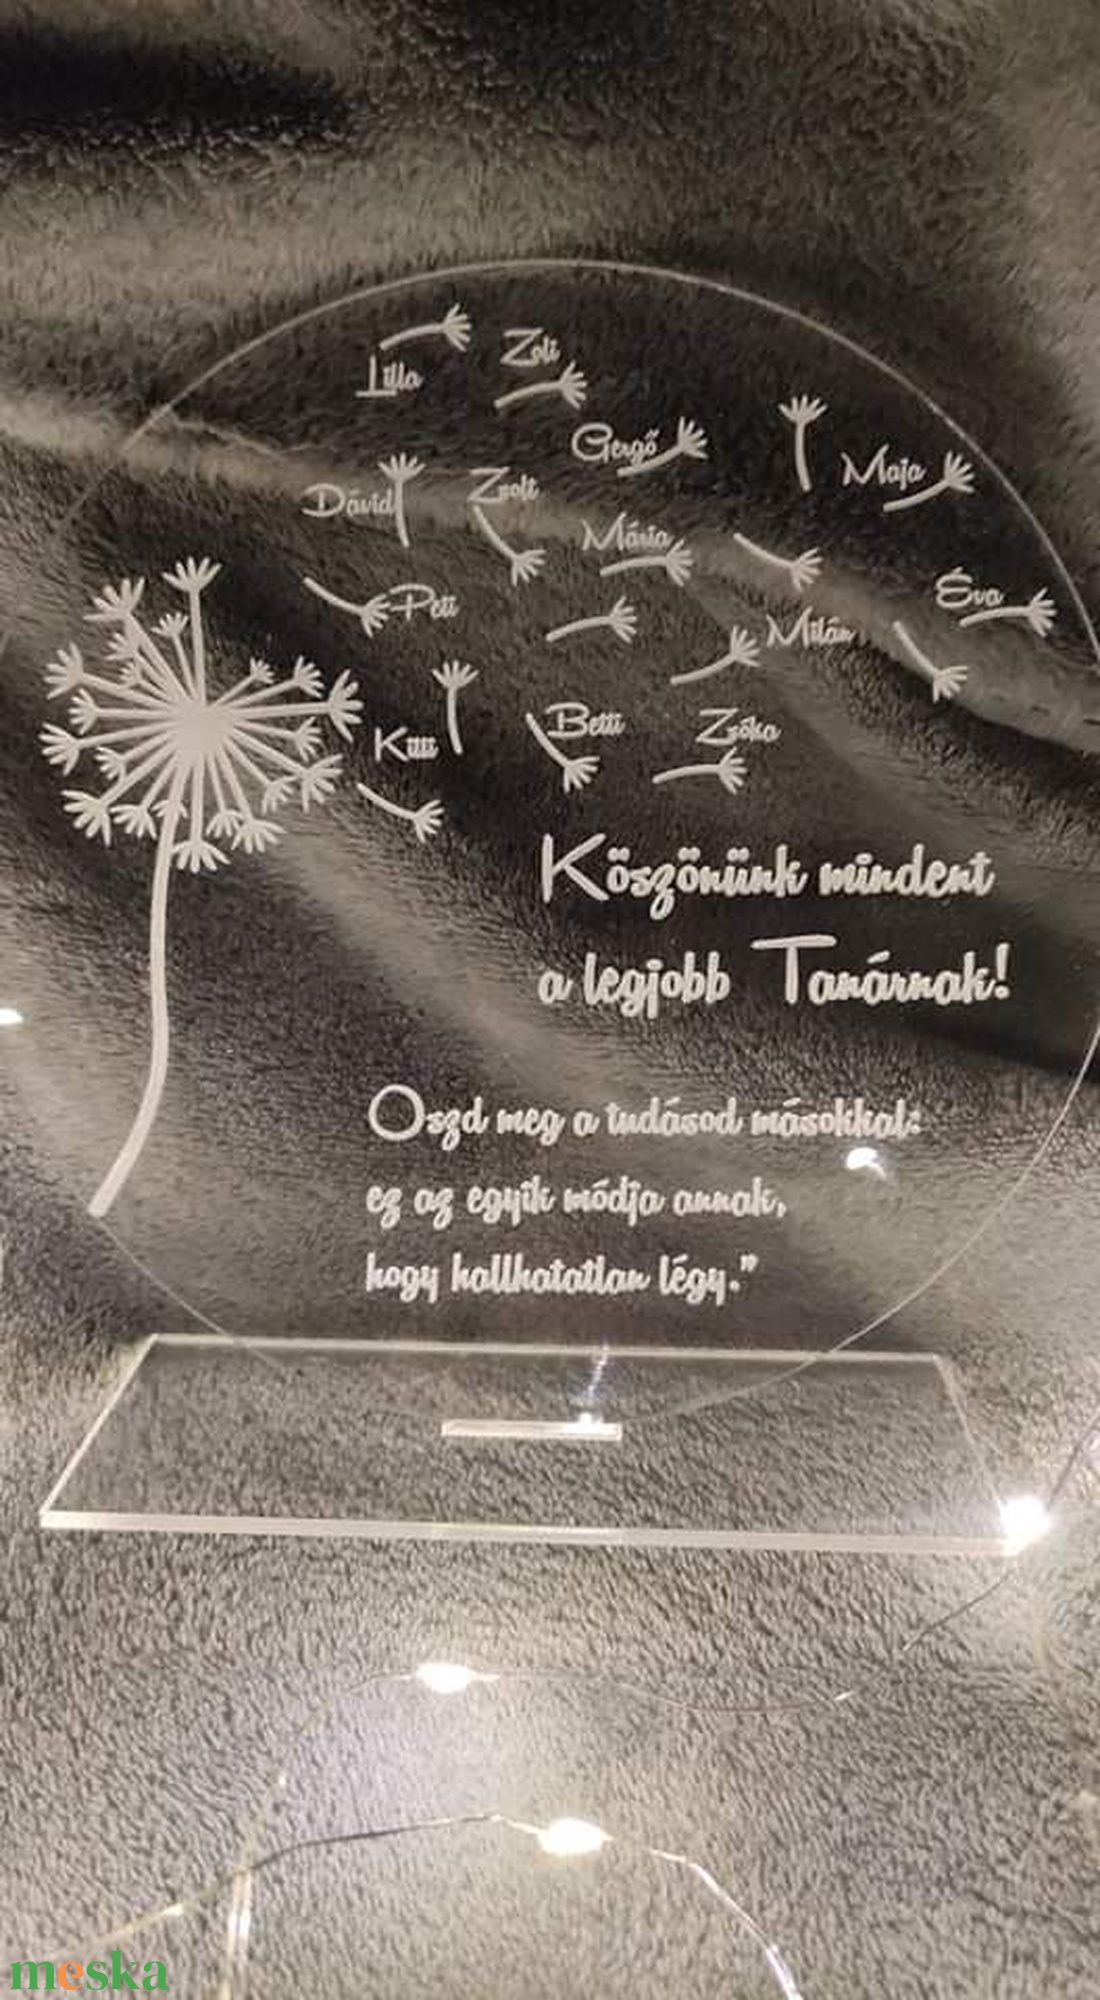 Lilla
Zoli
Gergő
Maja
Dávid
Zsolt
Mária
Éva
Peti
Milán
Kitti
Betti
Zsóka
Köszönünk mindent
a legjobb Tanárnak!
Oszd meg a tudásod másokkal:
ez az egyik módja annak,
hogy hallhatatlan légy.”
meska